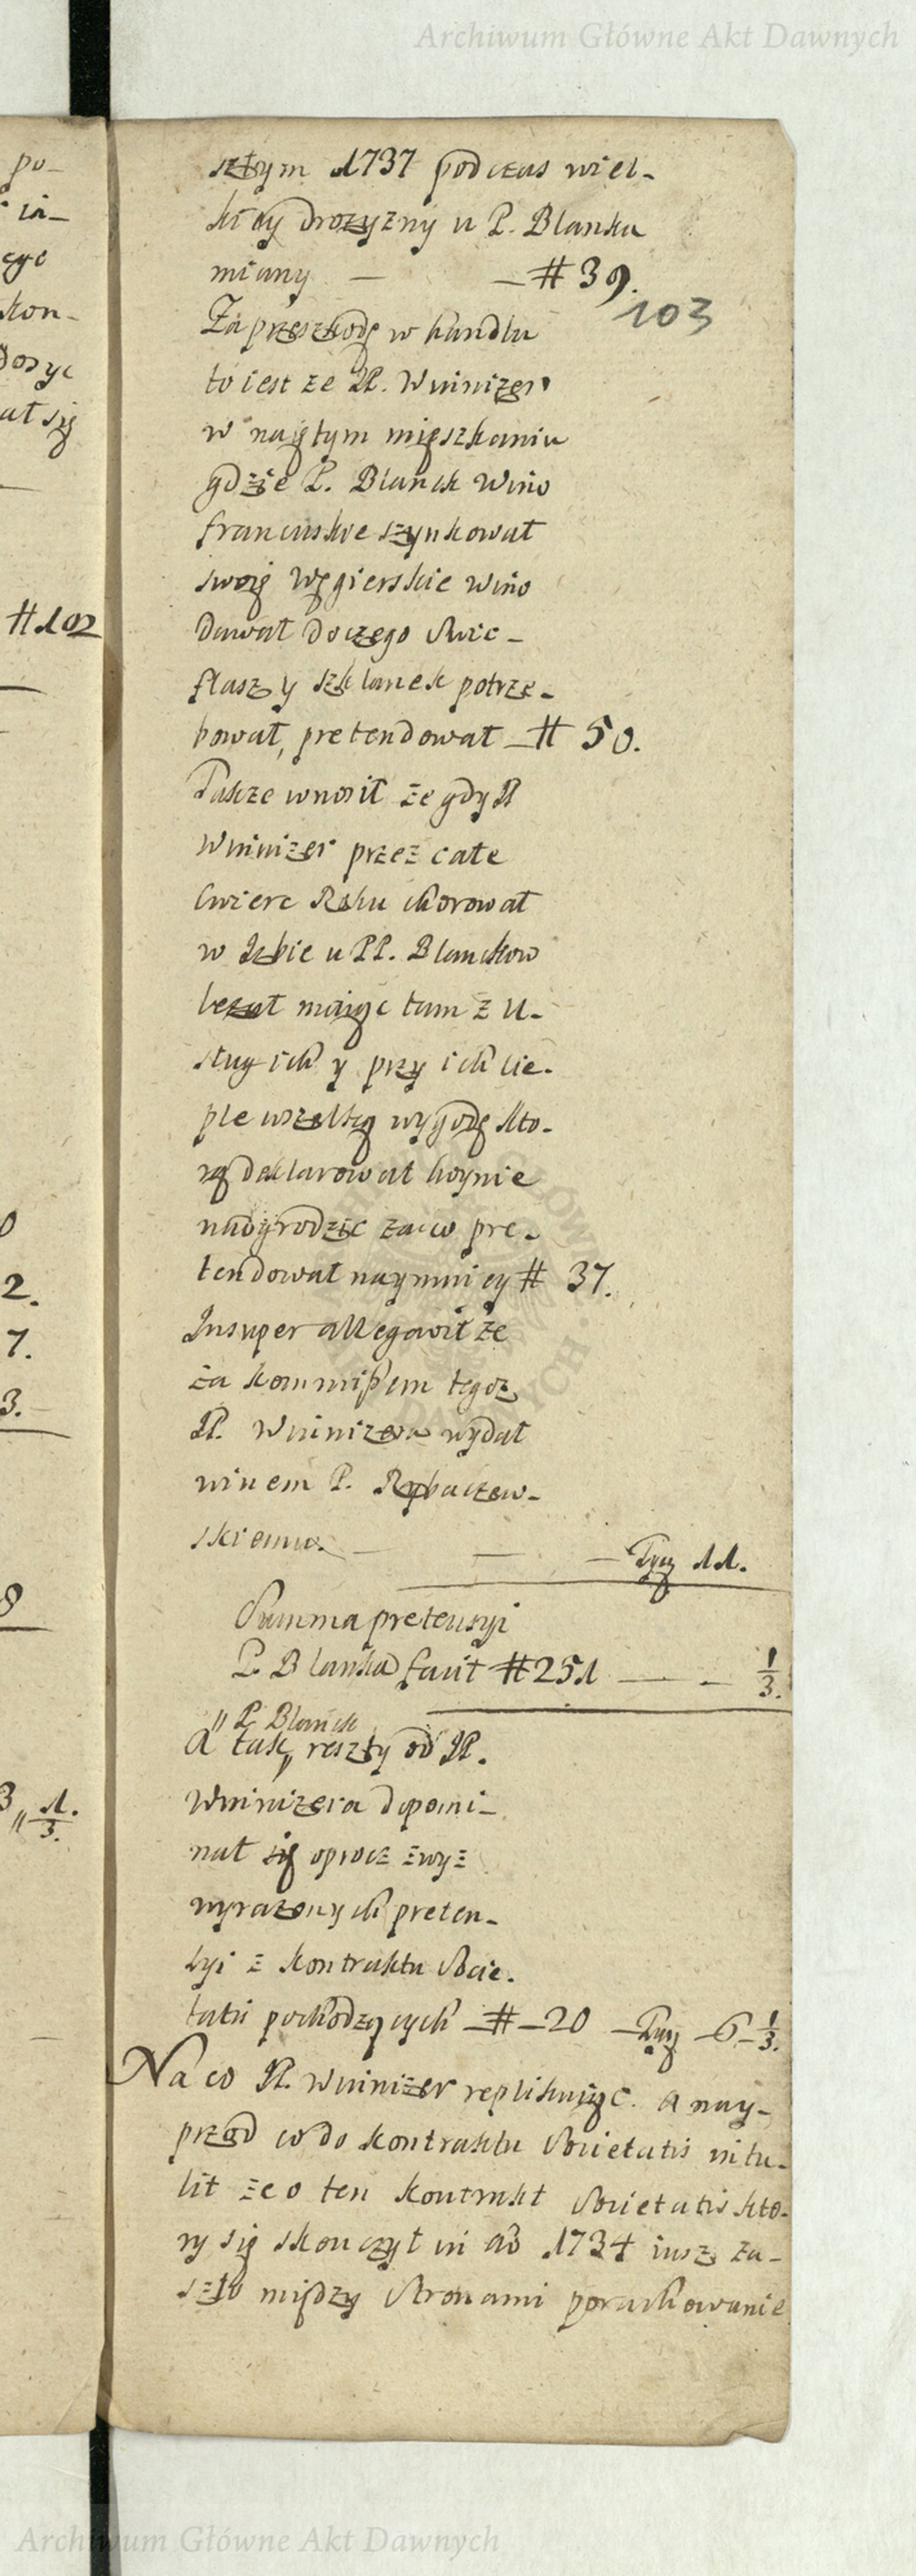 Archiwum Główne Akt Dawnych
szłym 1737 podczas wiel-
kiey drozyzny u P. Blanka
miany — — # 39.
103
Za przeszkodę w handlu
to iest ze JP. Wminizer
w naiętym mięszkaniu
gdzie P. Blanck Wino
francuskie szynkował
swoię Węgierskie wino
dawał do czego Swic-
flasz y szklanek potrze-
bował, pretendował — # 50.
Takze wnosił że gdy JP
Wminizer przez całe
cwierc Roku chorował
w Izbie u PP. Blanckow
lezał maiąc tam z u-
sług ich y przy ich cie-
ple wszelką wygodę kto-
rą deklarował hoynie
nadgrodzic za co pre-
tendował naymniey # 37.
Insuper allegavit że
za kommissem tegoz
JP. Wminizera wydał
winem P. Rybaczew-
skiemu. — — — Tyn 11.
Summa pretensyi
P. Blanka facit # 251 — - 1/3.
" P. Blanck
A tak " reszty od JP.
Wminizera dopomi-
nał się oprocz zwyz
wyrazonych preten-
syi z kontraktu Socie-
tatis pochodzących — # — 20 — Tyn — 6 — 1/3.
Na co JP. Wminizer replikuiąc. A nay-
przod co do kontraktu Societatis intu-
lit że o ten kontrakt Societatis kto-
ry się skonczył in ao 1734 iusz za-
szło między Stronami porachowanie
po-
ia-
cyc
kon-
dosyc
ał się
# 102
0
2.
7.
3.
8
3 " 1/3.
Archiwum Główne Akt Dawnych